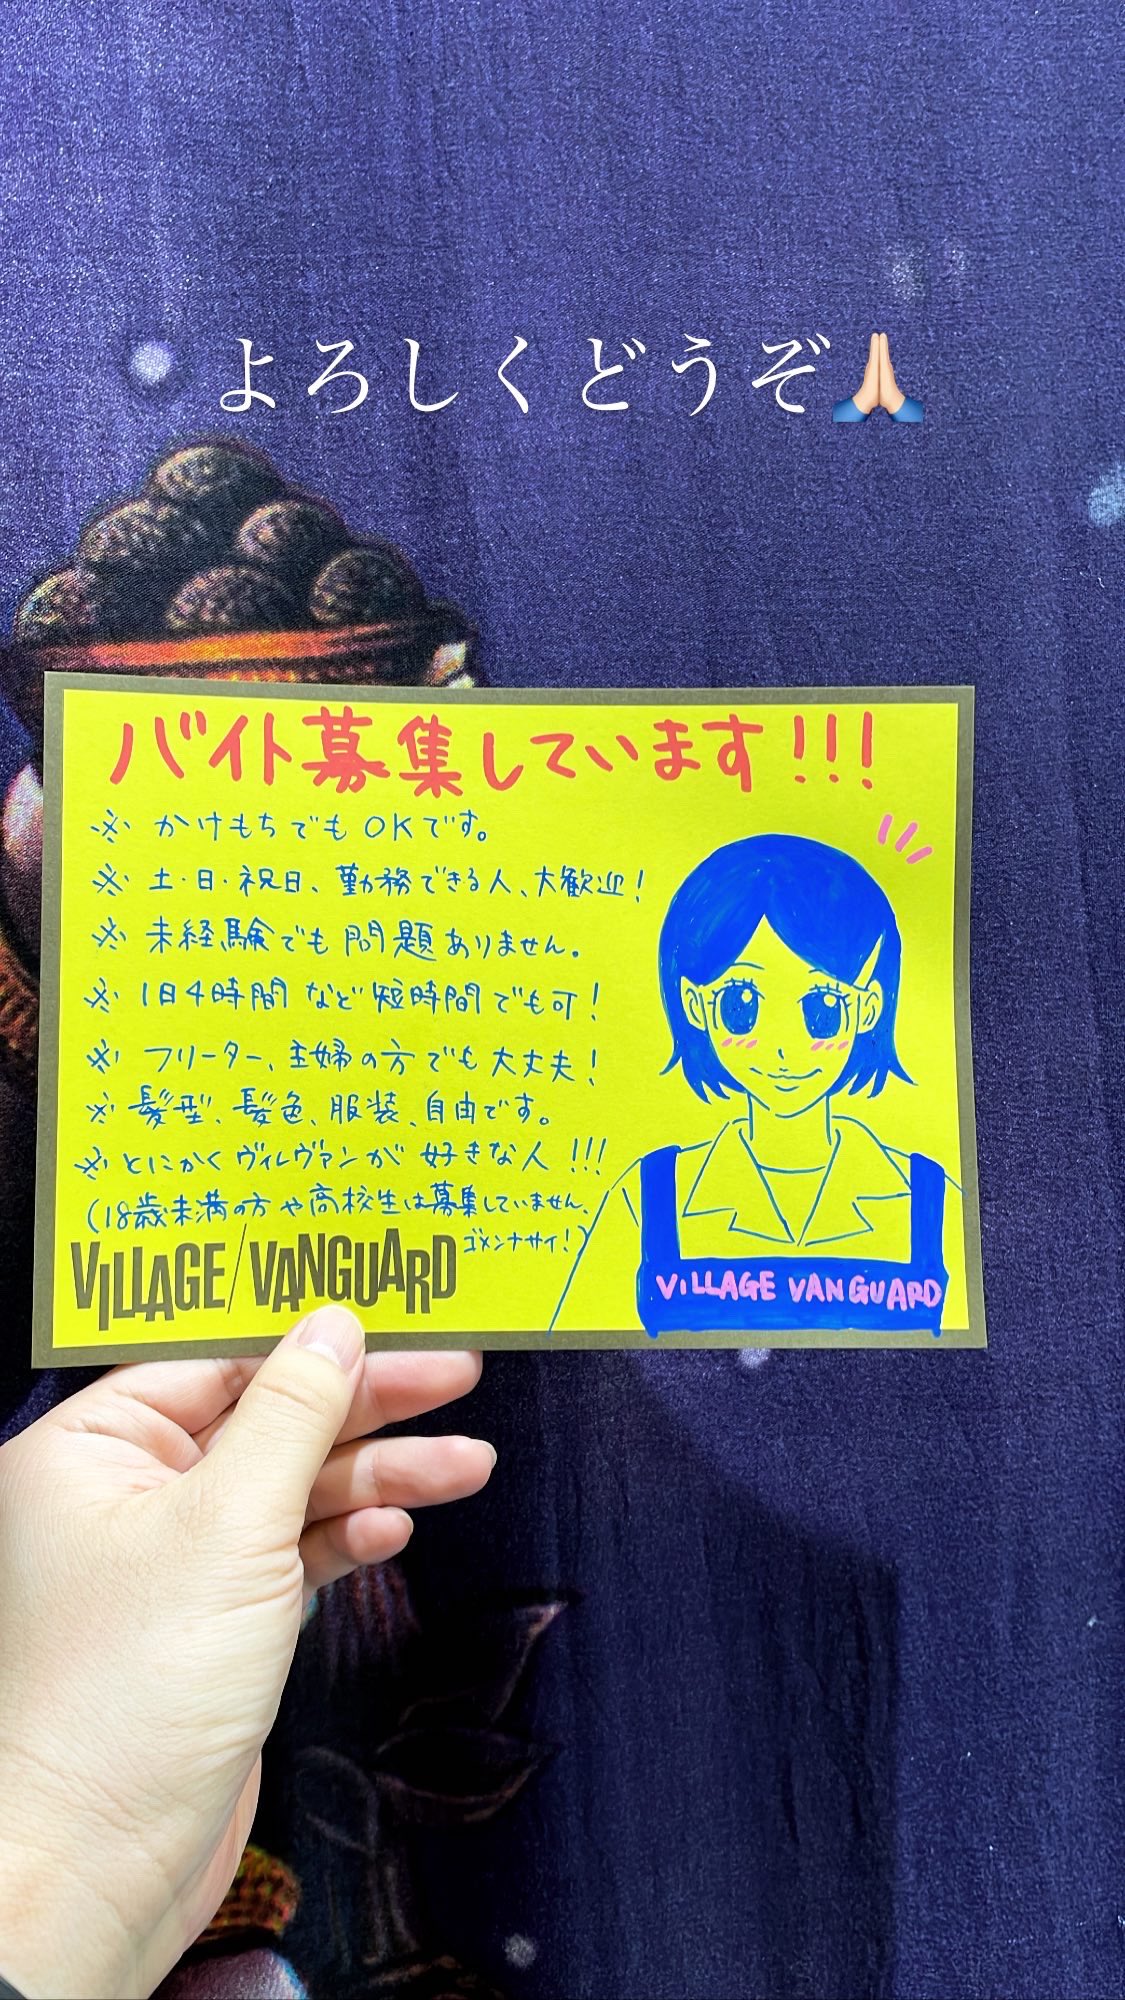 よろしくどうぞ🙏🏻
バイト募集しています!!!
※ かけもちでもOKです。
※ 土・日・祝日、勤務できる人、大歓迎!
※ 未経験でも問題ありません。
※ 1日4時間など短時間でも可!
※ フリーター、主婦の方でも大丈夫!
※ 髪型、髪色、服装、自由です。
※ とにかくヴィレヴァンが好きな人!!!
(18歳未満の方や高校生は募集していません、
ゴメンナサイ!)
VILLAGE/VANGUARD
VILLAGE VANGUARD